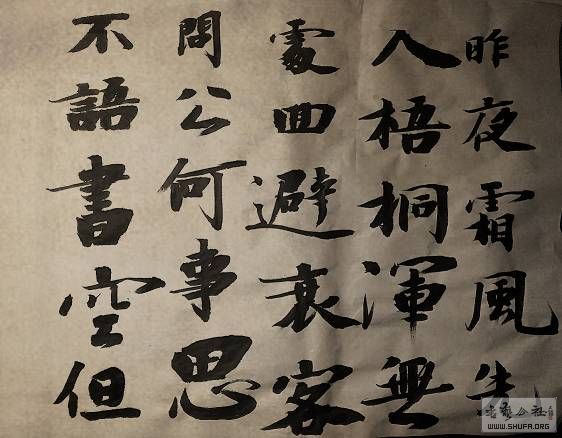 昨夜霜風先
入梧桐渾無
處回避衰容
問公何事思
不語書空但
書藝公社
WWW.SHUFA.ORG